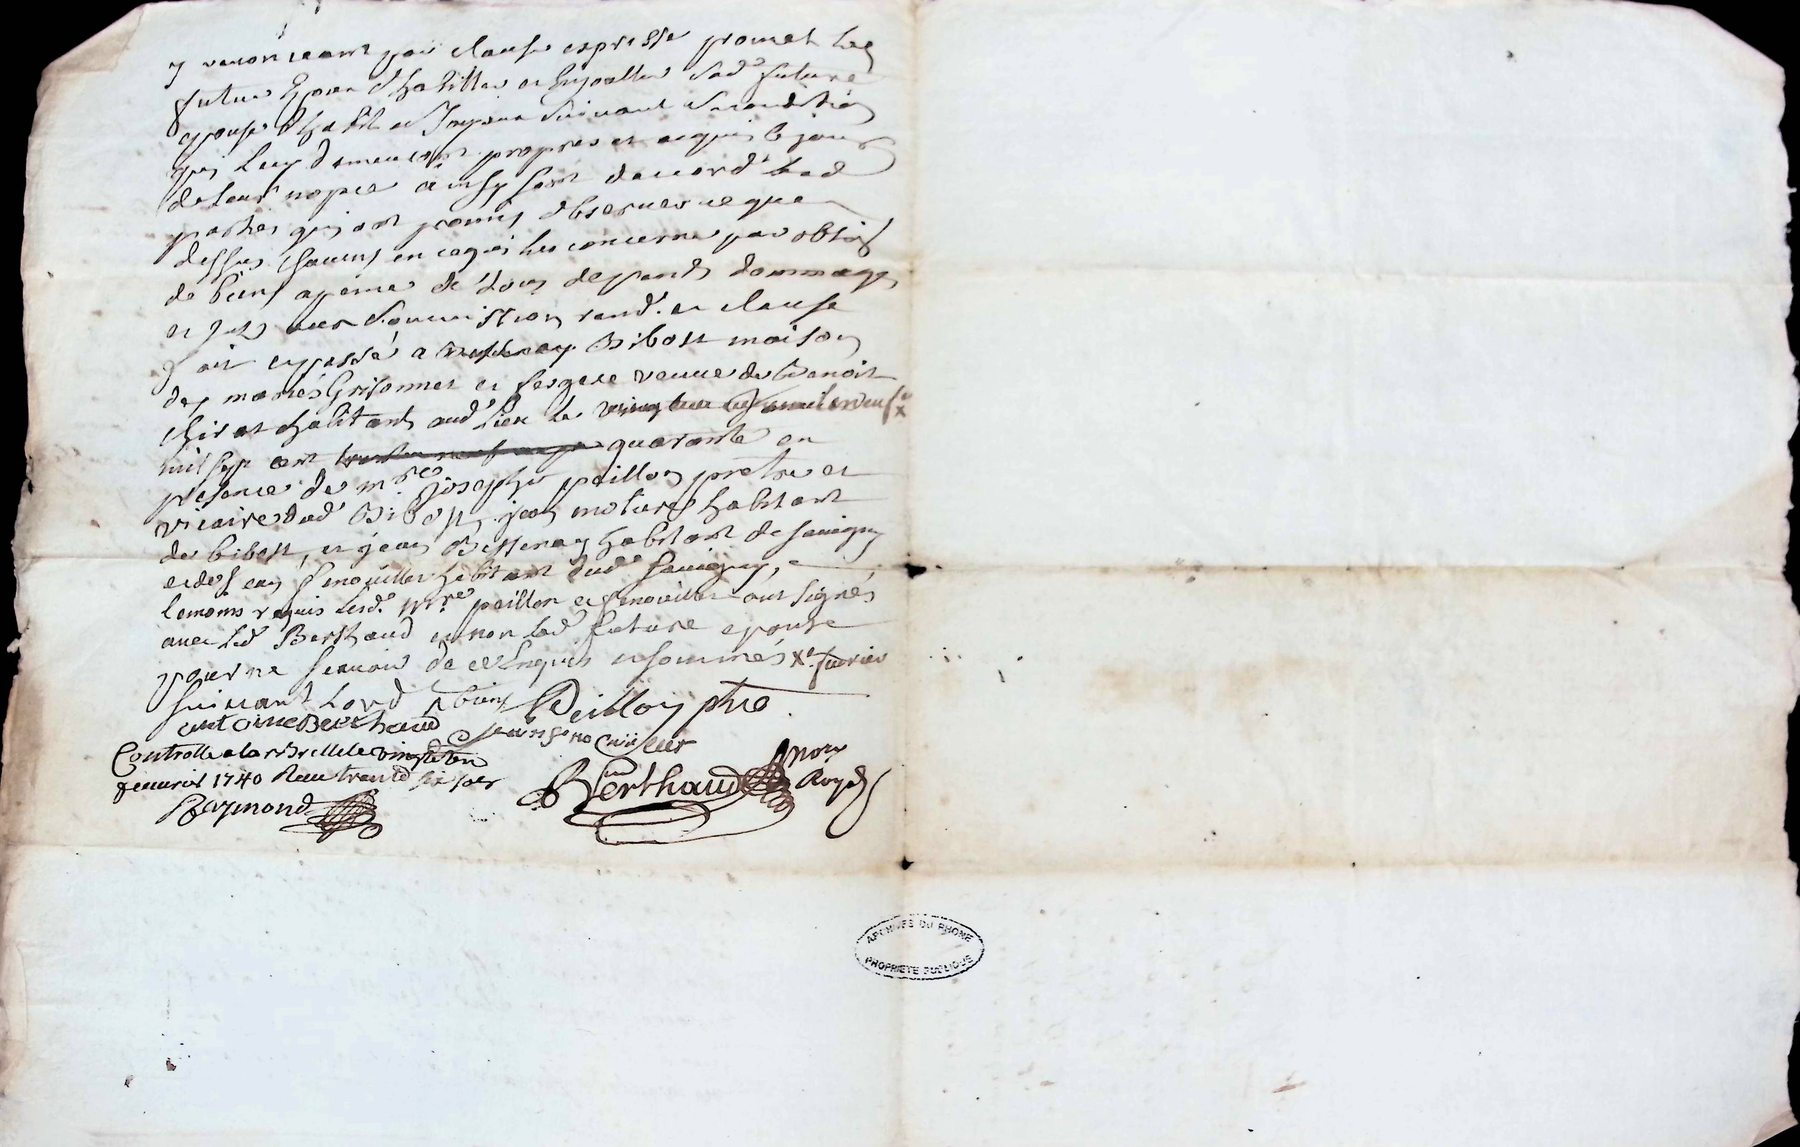 y renonceant par clause expresse promet led
futur Epoux d'habiller et Enjoailler lade future
epouse d'habit et Joyaux suivant sa condition
qui luy demeureront propres et acquis le jour
de leur nopce ainsy sont daccord lesd
parties qui ont promis observer ce que
dessus chacun en ce qui les concerne par oblig
de biens a peine de tous depends dommages
et jnts avec soumission rend. et clause
fait et passé a Bibost maison
des mariés Grisonnet et veuve de Benoit
habitants aud lieu le
mil sept cent quarante en
presence de mre Joseph peillon pretre et
vicaire dud Bibost, jean habitant
de bibost, et jean Bessenay habitant de savigny
et de jean fenouillet habitant dud savigny,
temoins requis lesd. mre peillon et fenouillet ont signés
avec led Berthaud et non lad future epouse
pour ne scavoir de ce Enquis et sommés X fevrier
suivant Lord
antoine Berthaud Peillon ptre
jean fenouillet
Controllé a larbrelle le vingt
feuvrier 1740 Receu trente six sols
Raymond
Berthaud Nore Royal
ARCHIVES DU RHONE
PROPRIETE PUBLIQUE